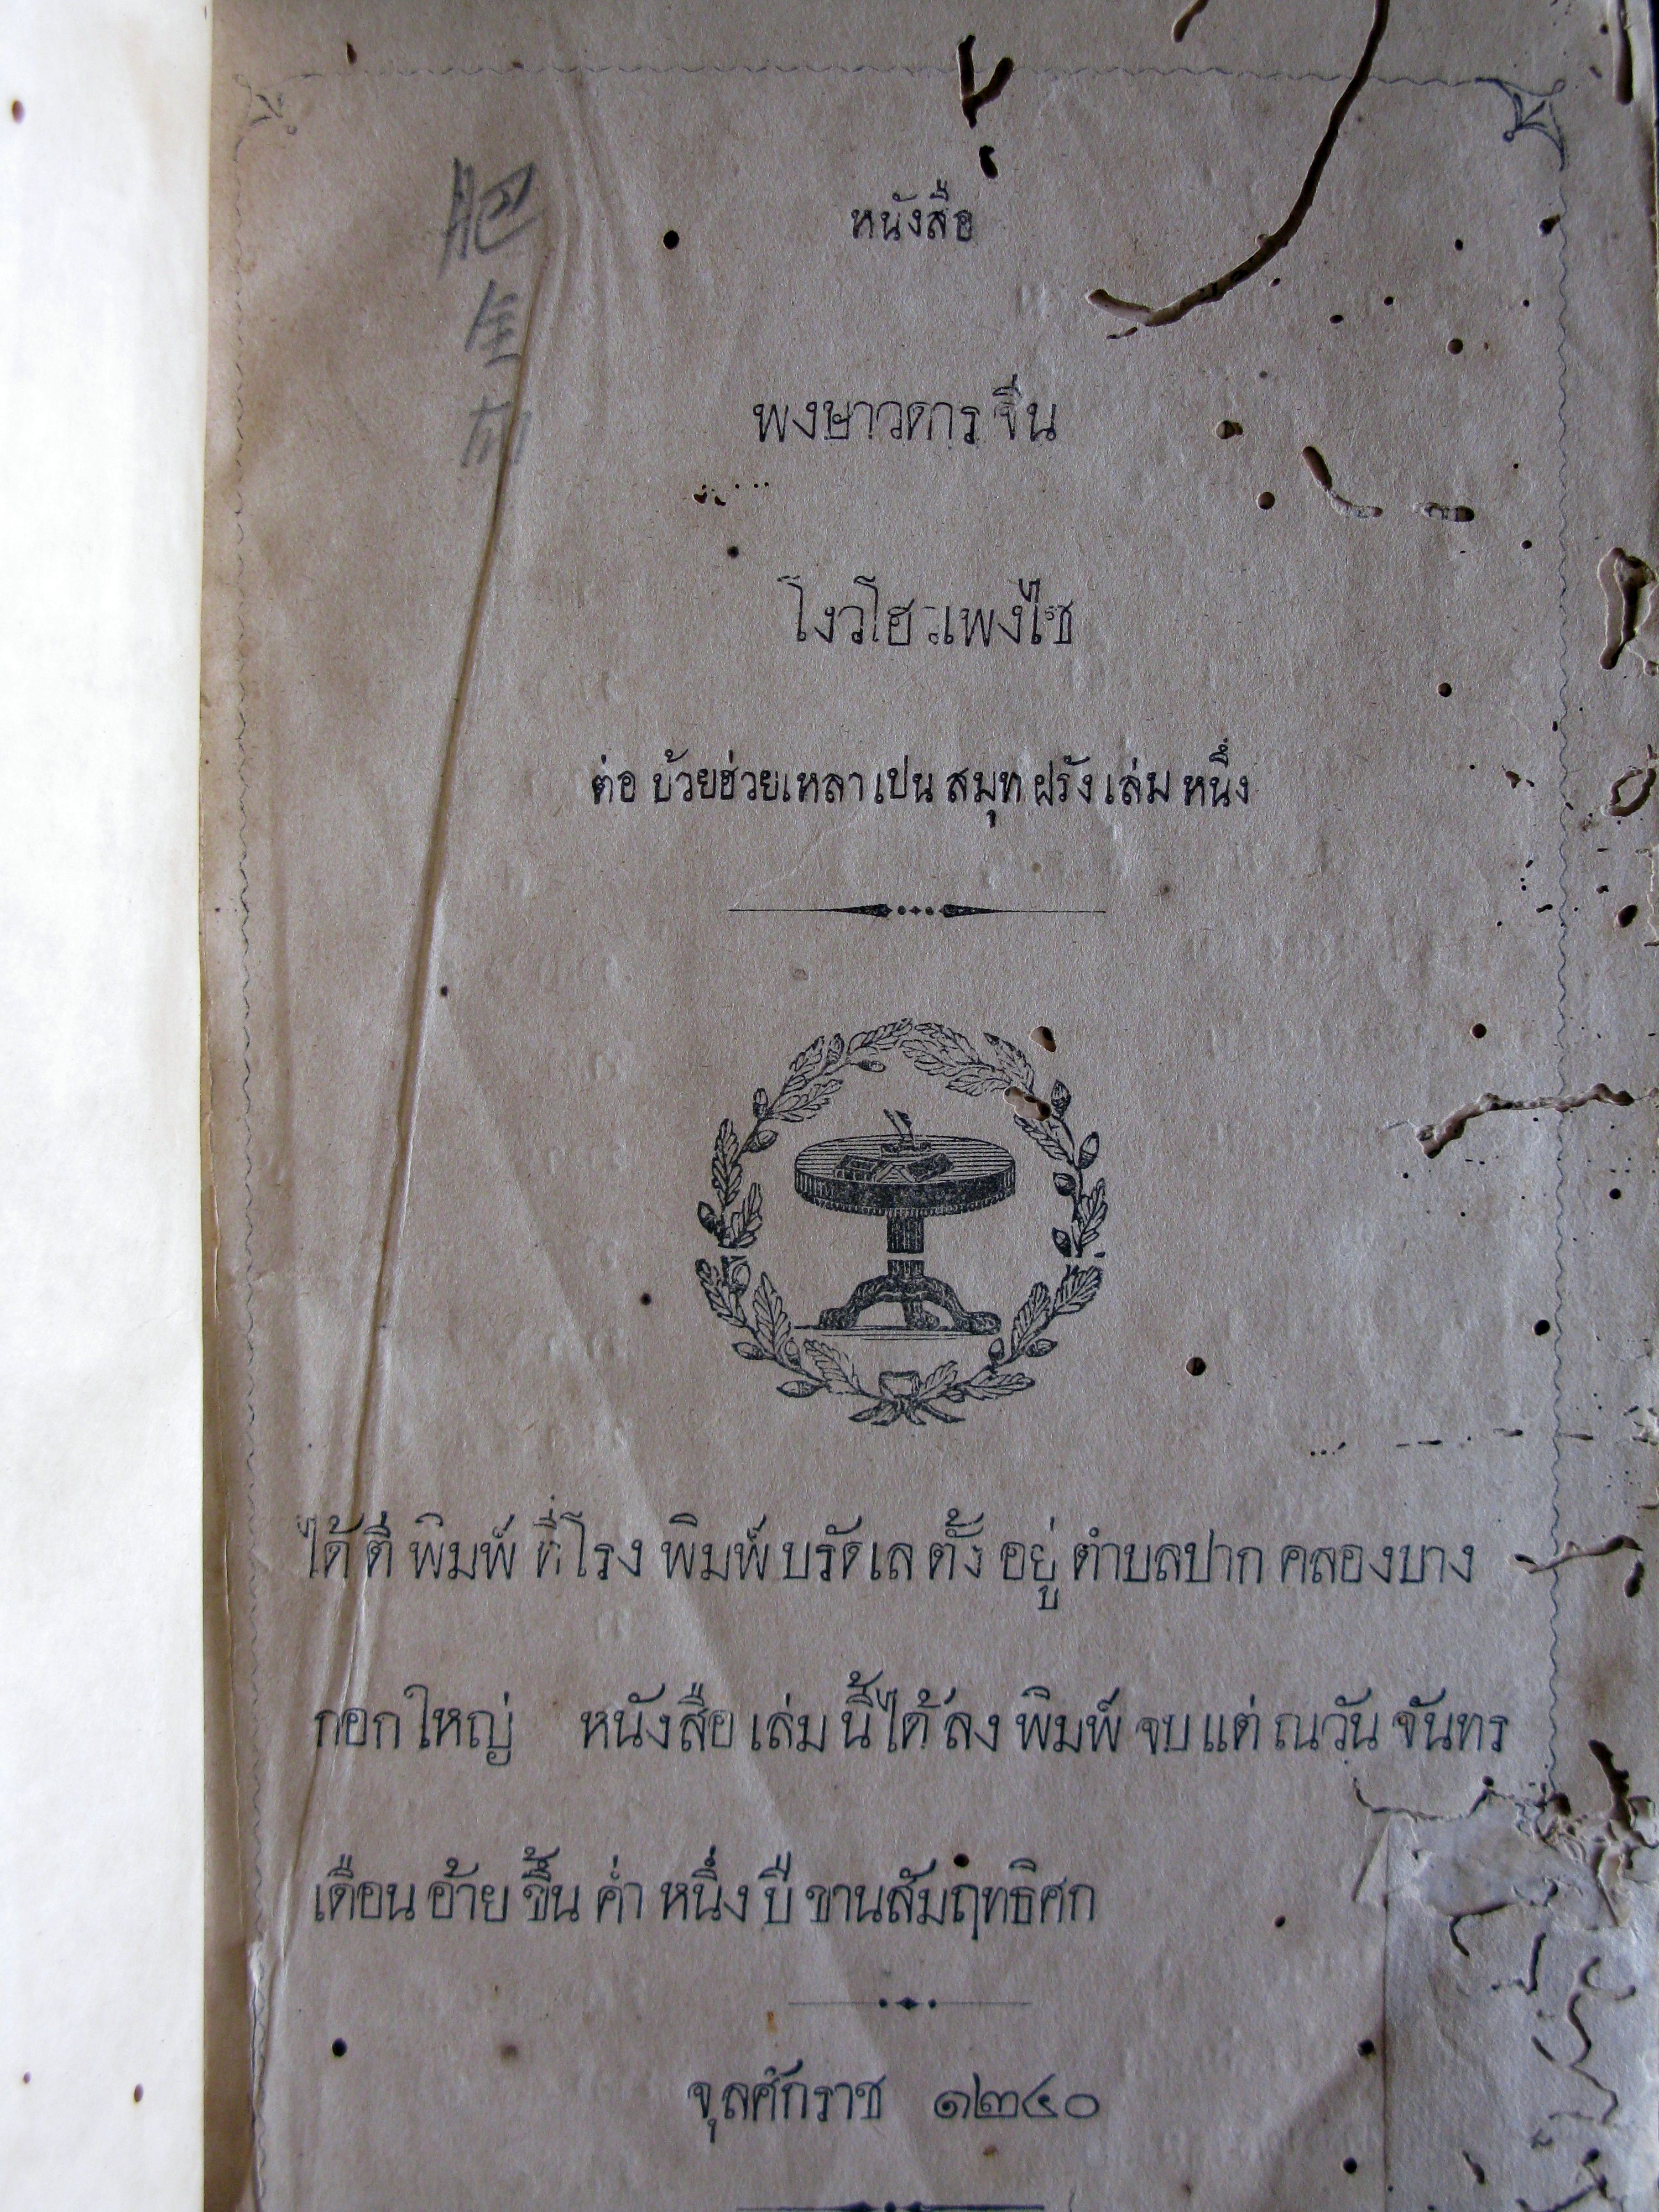 หนังสือ
พงษาวดาร จีน
โงวโฮวเพงไซ
ต่อ บ้วยฮ่วยเหลา เปน สมุท ฝรั่ง เล่ม หนึ่ง
ได้ ตี พิมพ์ ที่โรง พิมพ์ บรัดเล ตั้ง อยู่ ตำบลปาก คลองบาง
กอก ใหญ่ หนังสือ เล่ม นี้ ได้ ลง พิมพ์ จบ แต่ ณวัน จันทร
เดือน อ้าย ขึ้น ค่ำ หนึ่ง ปี ขานสัมฤทธิศก
จุลศักราช ๑๒๔๐